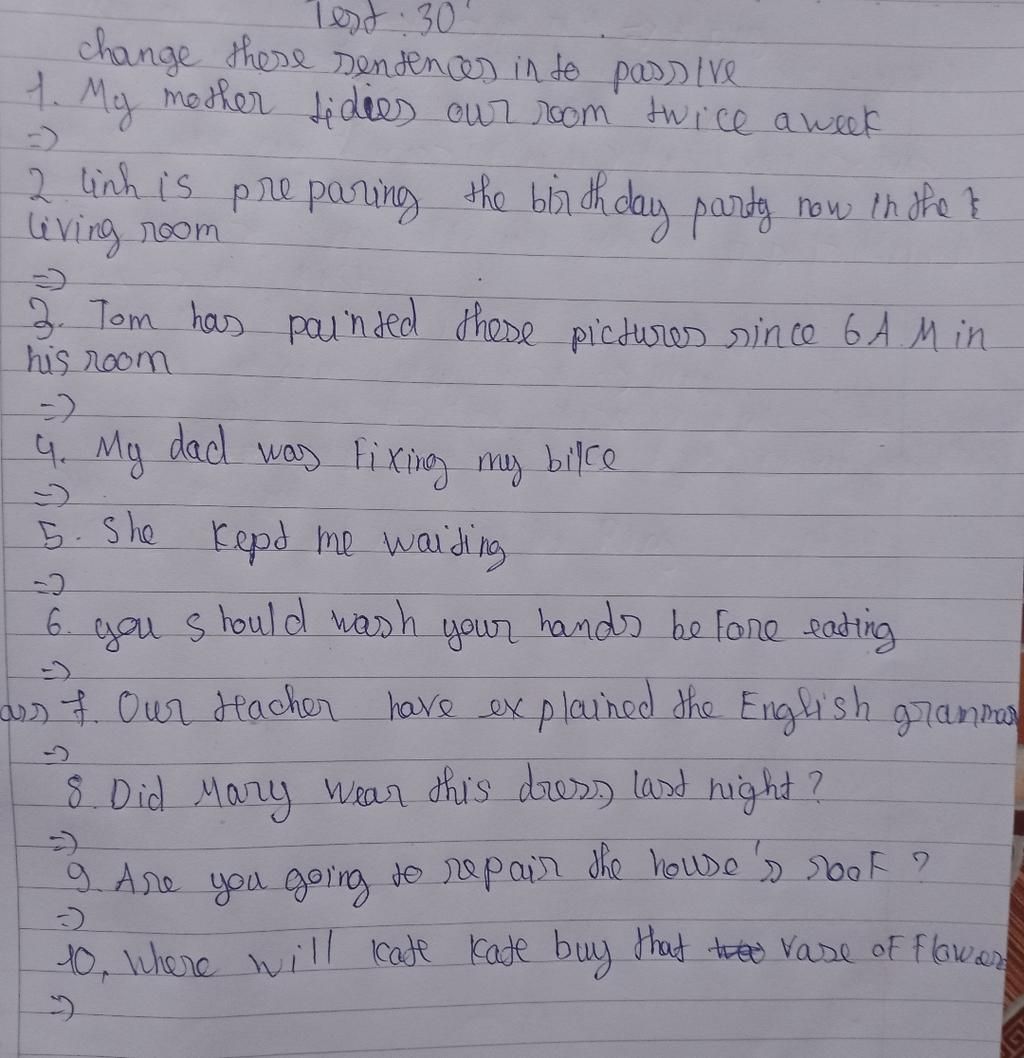 Test: 30'
change these sentences in to passive
1. My mother tidies our room twice a week
=>
2 linh is preparing the birthday party now in the t
living room
=>
3. Tom has painted these pictures since 6 A M in
his room
=>
4. My dad was Fixing my bike
=>
5. She kept me waiting
=>
6. you should wash your hands before eating
=>
7. Our teacher have explained the English grammar
=>
8. Did Mary wear this dress last night?
=>
9. Are you going to repair the house's roof?
=>
10, Where will Kate Kate buy that vase of flower
=>